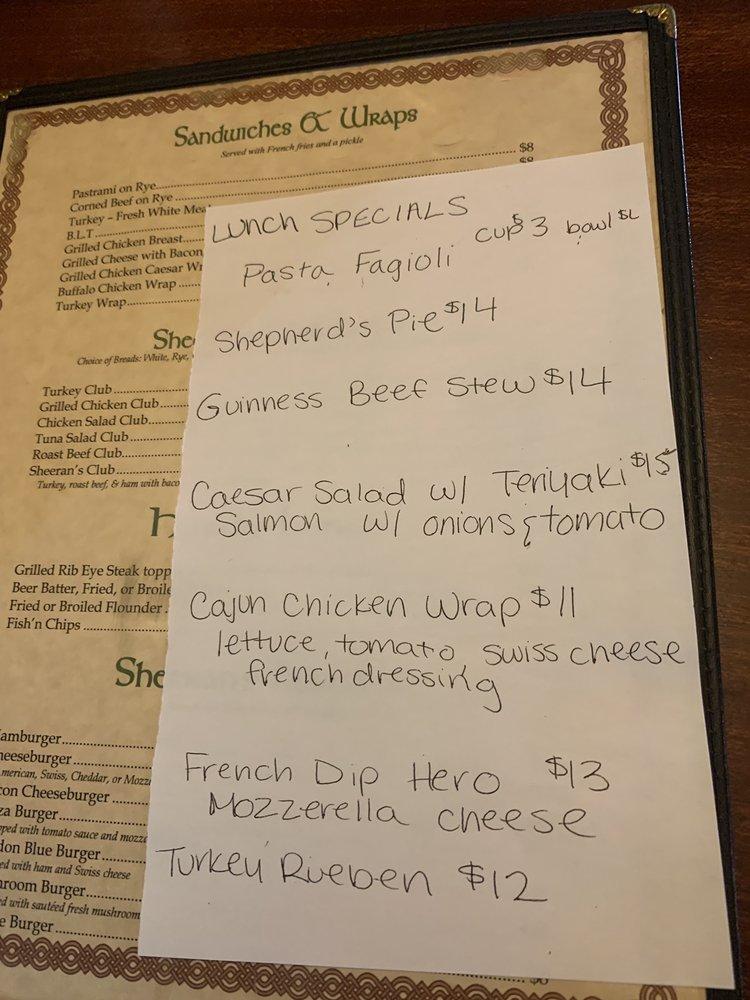 Sandwiches & Wraps
Served with French fries and a pickle
Pastrami on Rye $8
Corned Beef on Rye $8
Turkey – Fresh White
B.L.T.
Grilled Chicken Breast
Grilled Cheese with Bacon
Grilled Chicken Caesar
Buffalo Chicken Wrap
Turkey Wrap
Choice of Breads: White, Rye,
Turkey Club
Grilled Chicken Club
Chicken Salad Club
Tuna Salad Club
Roast Beef Club
Sheeran's Club
Turkey, roast beef, & ham with
Grilled Rib Eye Steak
Beer Batter, Fried, or
Fried or Broiled Flounder
Fish'n Chips
American, Swiss, Cheddar, or
Cheeseburger
Burger
with tomato sauce and
Blue Burger
with ham and Swiss cheese
Burger
with sautéed fresh mushroom
Burger
LUNCH SPECIALS
Pasta Fagioli cup $3 bowl
Shepherd's Pie $14
Guinness Beef Stew $14
Caesar Salad w/ Teriyaki $15
Salmon w/ onions & tomato
Cajun Chicken Wrap $11
lettuce, tomato swiss cheese
french dressing
French Dip Hero $13
Mozzerella cheese
Turkey Rueben $12